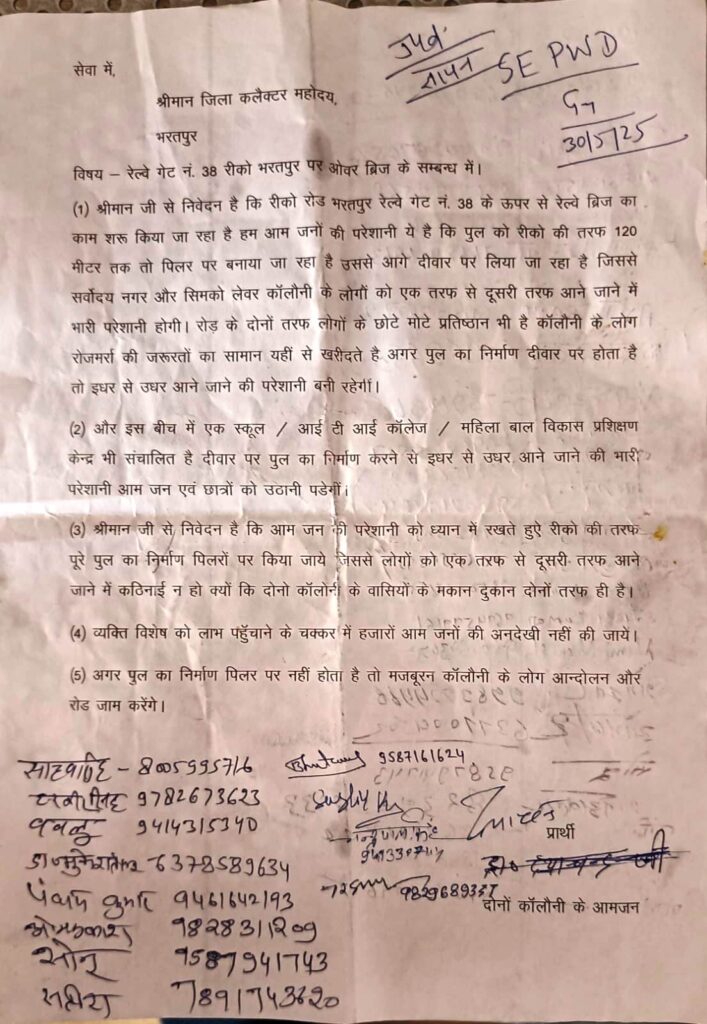 SE PWD
30/5/25
सेवा में,
श्रीमान जिला कलैक्टर महोदय,
भरतपुर
विषय – रेल्वे गेट नं. 38 रीको भरतपुर पर ओवर ब्रिज के सम्बन्ध में।
(1) श्रीमान जी से निवेदन है कि रीको रोड भरतपुर रेल्वे गेट नं. 38 के ऊपर से रेल्वे ब्रिज का
काम शरू किया जा रहा है हम आम जनों की परेशानी ये है कि पुल को रीको की तरफ 120
मीटर तक तो पिलर पर बनाया जा रहा है उससे आगे दीवार पर लिया जा रहा है जिससे
सर्वोदय नगर और सिमको लेवर कॉलौनी के लोगों को एक तरफ से दूसरी तरफ आने जाने में
भारी परेशानी होगी। रोड़ के दोनों तरफ लोगों के छोटे मोटे प्रतिष्ठान भी है कॉलौनी के लोग
रोजमर्रा की जरूरतों का सामान यहीं से खरीदते है अगर पुल का निर्माण दीवार पर होता है
तो इधर से उधर आने जाने की परेशानी बनी रहेगीं।
(2) और इस बीच में एक स्कूल / आई टी आई कॉलेज / महिला बाल विकास प्रशिक्षण
केन्द्र भी संचालित है दीवार पर पुल का निर्माण करने से इधर से उधर आने जाने की भारी
परेशानी आम जन एवं छात्रों को उठानी पडेगीं।
(3) श्रीमान जी से निवेदन है कि आम जन की परेशानी को ध्यान में रखते हुऐ रीको की तरफ
पूरे पुल का निर्माण पिलरों पर किया जाये जिससे लोगों को एक तरफ से दूसरी तरफ आने
जाने में कठिनाई न हो क्यों कि दोनो कॉलौनी के वासियों के मकान दुकान दोनों तरफ ही है।
(4) व्यक्ति विशेष को लाभ पहुँचाने के चक्कर में हजारों आम जनों की अनदेखी नहीं की जाये।
(5) अगर पुल का निर्माण पिलर पर नहीं होता है तो मजबूरन कॉलौनी के लोग आन्दोलन और
रोड जाम करेंगे।
8005995716
9587161624
9782673623
9414315340
प्रार्थी
6378589634
9461642193
दोनों कॉलौनी के आमजन
ओमप्रकाश 9828311209
सोनू 9587941743
7891743620